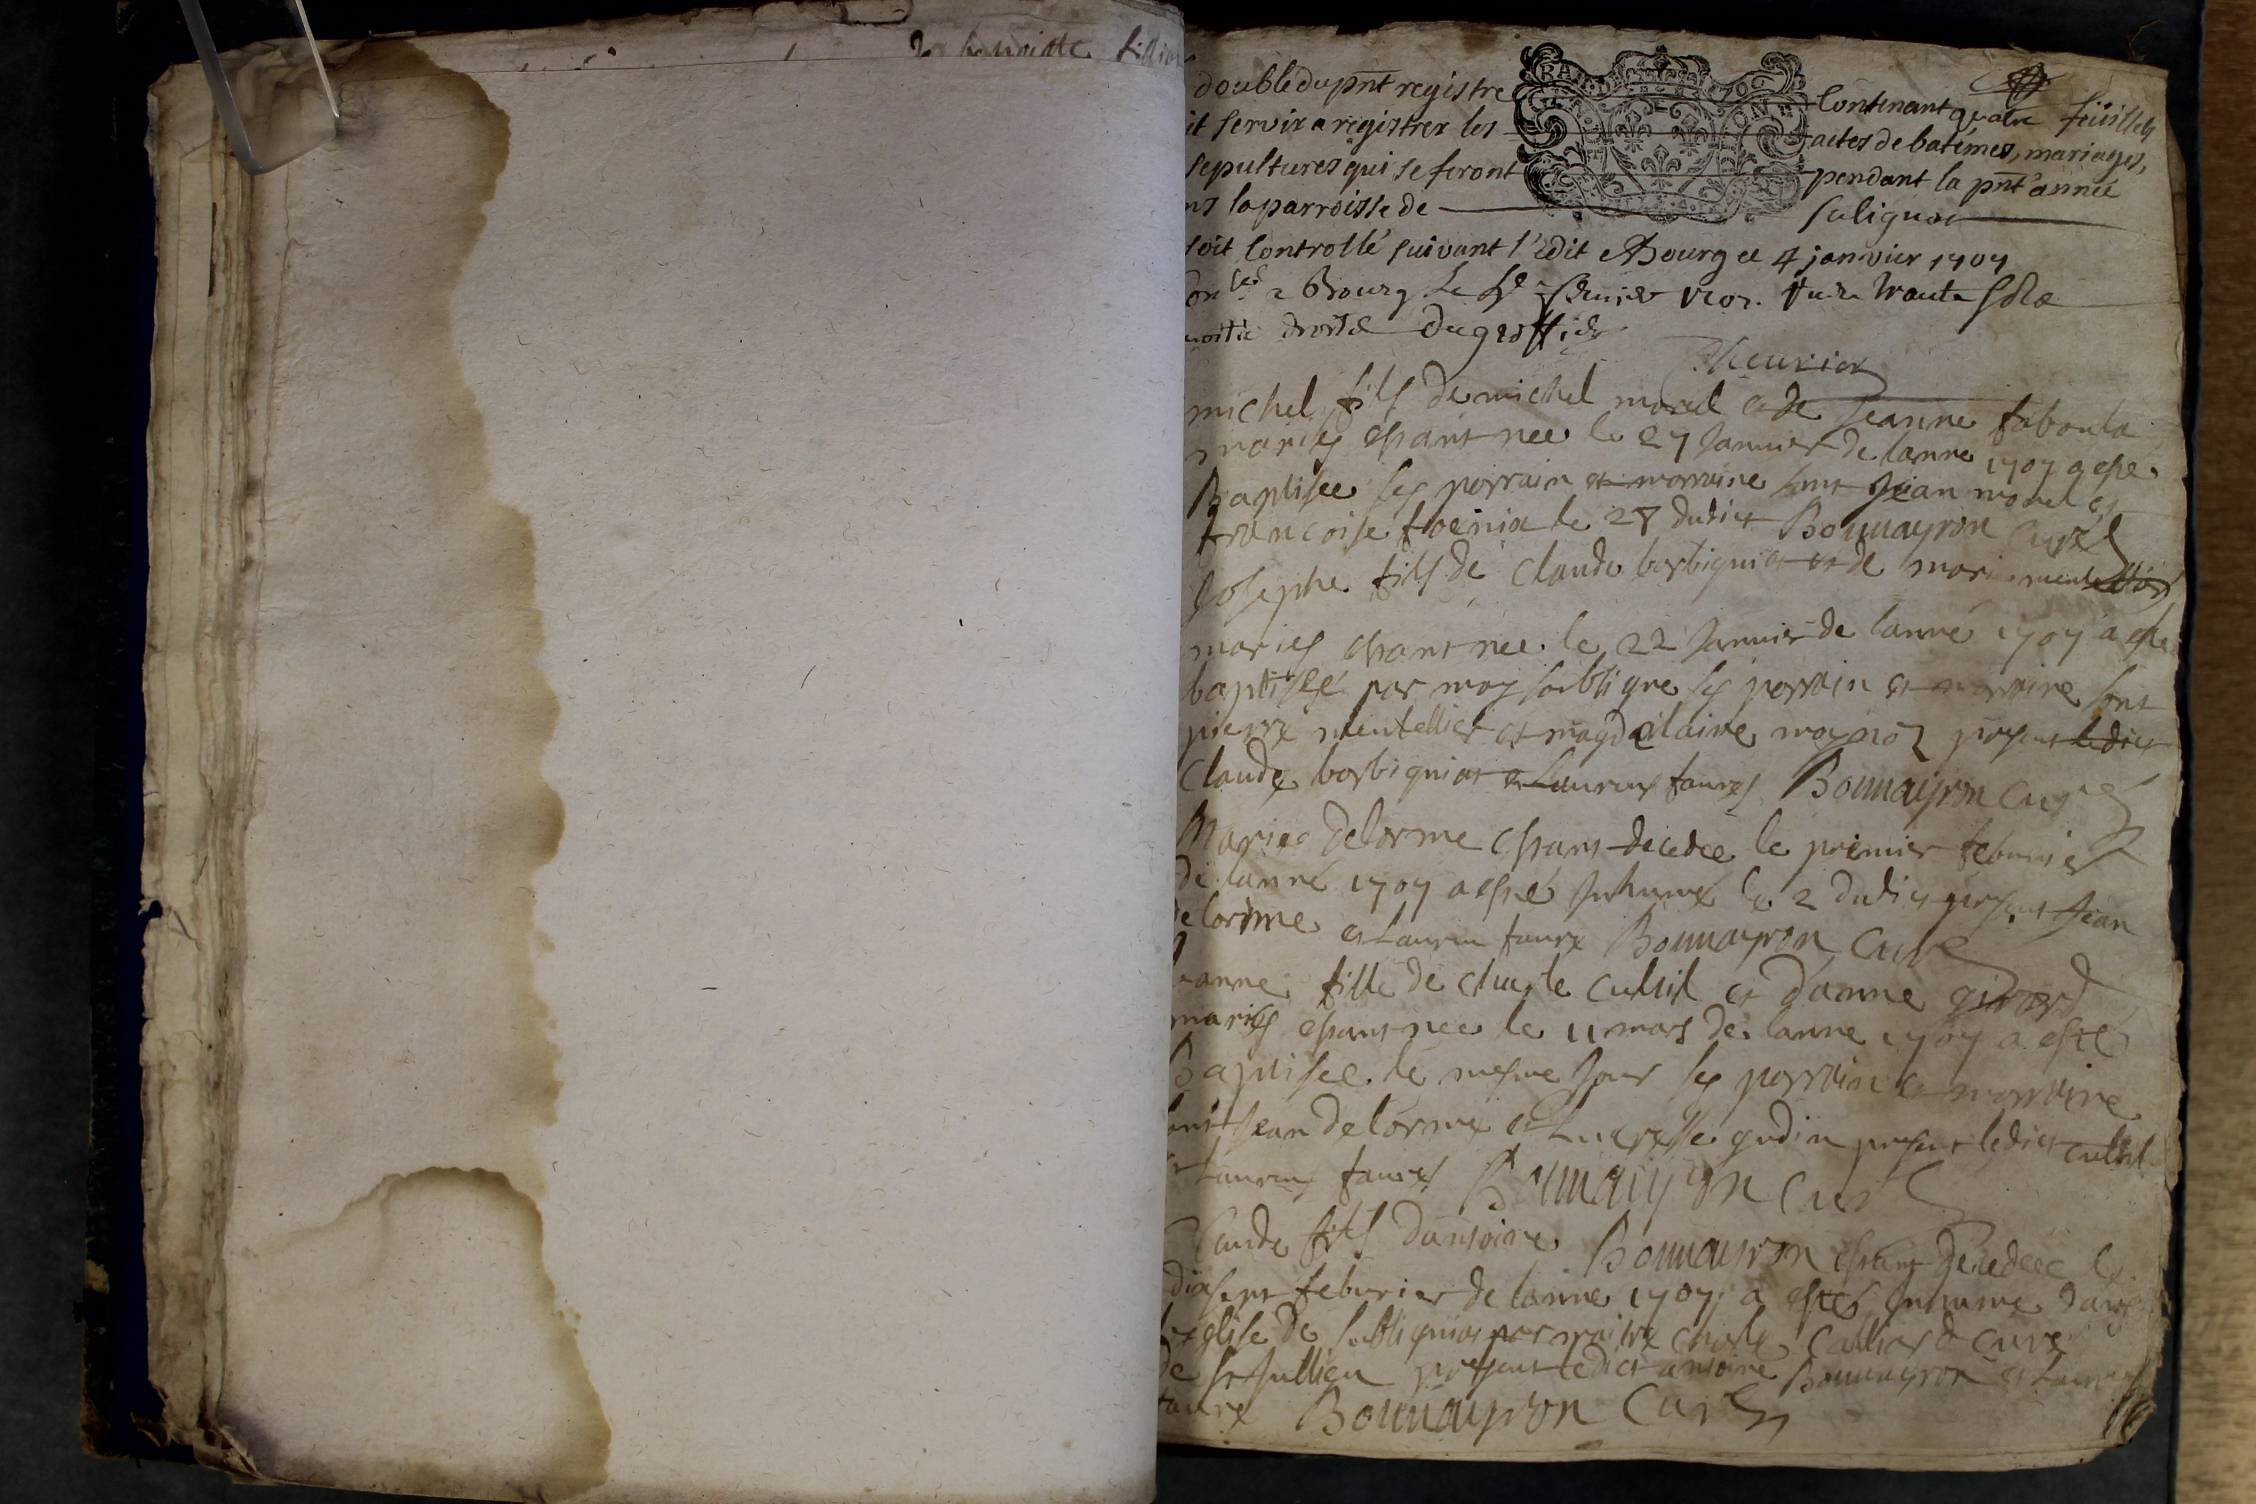 double du pnt registre contenant quatre feüillets
it servir a registrer les actes de batêmes, mariages,
sepultures qui se feront pendant la pnt' année
ns la parroisse de Salignat
soit controllé suivant l'edit a Bourg ce 4 janvier 1707
a Bourg le
droits du greffier
michel fils de michel morel et de Jeanne
maries estant nee le 27 Janvier de lanne 1707 a este
Baptisee ses parrain et marraine sont Jean morel et
francoise le 28 dudict Bonnayron Curé
Josephe fils de Claude borbigniat et de mari mentellier
maries estant nee le 22 Janvier de lanné 1707 a este
baptiseé par moy soubsigne ses parrain et marraine sont
pierre mentellier et magdelaine present ledict
Claude borbigniat et Laurens faures Bonnayron Curé
Marie Delorme estant decedee le premier feburier
de lanné 1707 a esté Inhumé le 2 dudict present Jean
elorme et Lauren faure Bonnayron Curé
eanne fille de charle cultil et d'anne girard
maries estant nee le 11 mars de lanne 1707 a esté
Baptisee le mesme Jour ses parrain et marraine
ont Jean Delorme et Lucresse gudin present ledict cultil
et Laurens faures Bonnayron Curé
Claude fils dantoine Bonnayron estant decedeé le
dixsept feburier de lanne 1707 a esté Inhumé dans
leglise de par maitre charle Calliard curé
de St Jullien present ledict antoine Bonnayron et Laurens
faure Bonnayron Curé